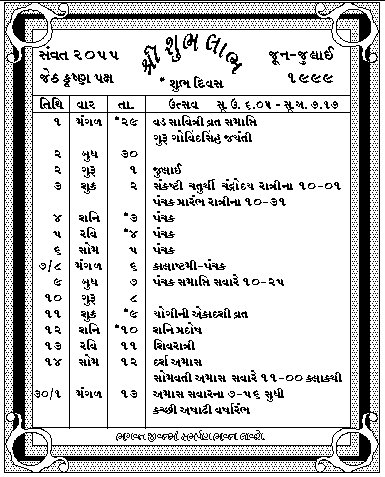 શ્રી શુભ લાભ
સંવત ૨૦૫૫
જૂન-જુલાઈ
જેઠ કૃષ્ણ પક્ષ
* શુભ દિવસ
૧૯૯૯
તિથિ વાર તા. ઉત્સવ સૂ.ઉ. ૬.૦૫ - સૂ.અ. ૭.૧૭
૧ મંગળ *૨૯ વડ સાવિત્રી વ્રત સમાપ્તિ
ગુરૂ ગોવિંદસિંહ જયંતી
૨ બુધ ૩૦
૨ ગુરૂ ૧ જુલાઈ
૩ શુક્ર ૨ સંકષ્ટી ચતુર્થી ચંદ્રોદય રાત્રીના ૧૦-૦૧
પંચક પ્રારંભ રાત્રીના ૧૦-૩૧
૪ શનિ *૩ પંચક
૫ રવિ *૪ પંચક
૬ સોમ ૫ પંચક
૭/૮ મંગળ ૬ કાલાષ્ટમી-પંચક
૯ બુધ ૭ પંચક સમાપ્તિ સવારે ૧૦-૨૫
૧૦ ગુરૂ ૮
૧૧ શુક્ર *૯ યોગીની એકાદશી વ્રત
૧૨ શનિ *૧૦ શનિ પ્રદોષ
૧૩ રવિ ૧૧ શિવરાત્રી
૧૪ સોમ ૧૨ દર્શ અમાસ
સોમવતી અમાસ સવારે ૧૧-૦૦ કલાકથી
૩૦/૧ મંગળ ૧૩ અમાસ સવારના ૭-૫૬ સુધી
કચ્છી અષાઢી વર્ષારંભ